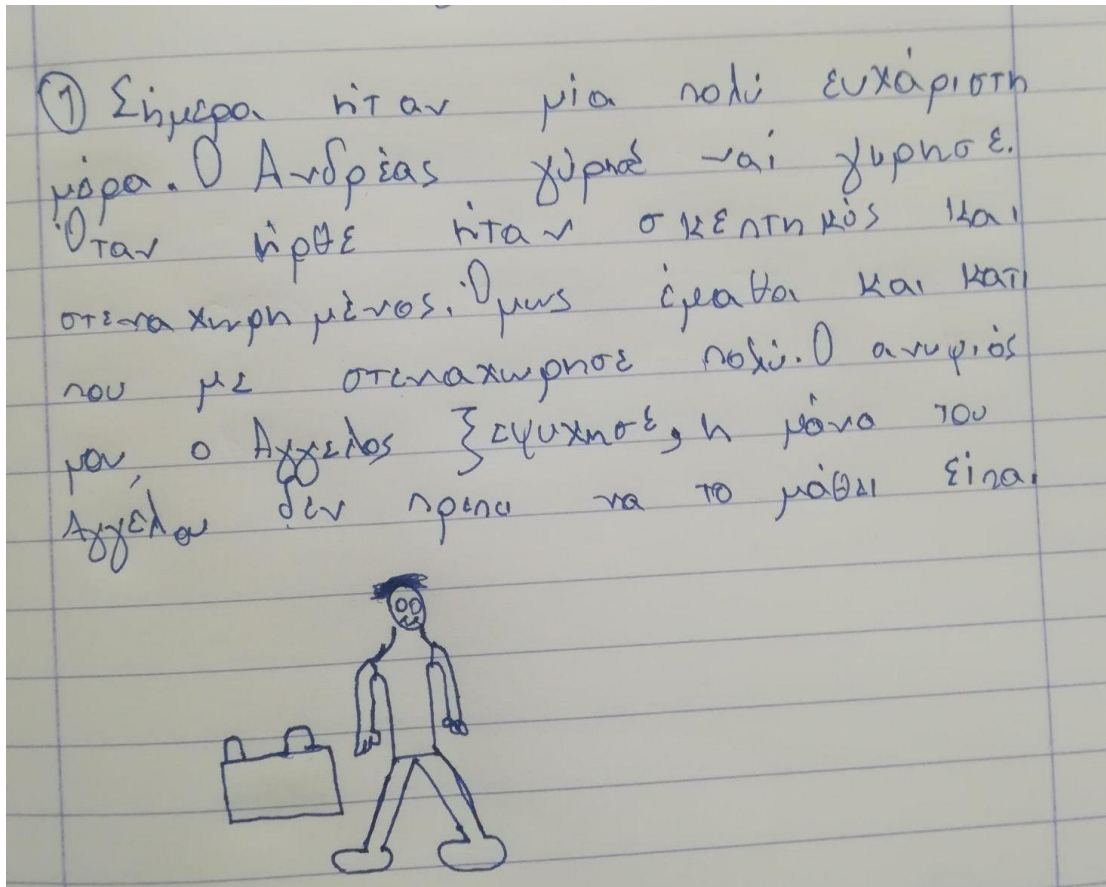 ① Σήμερα ήταν μία πολύ ευχάριστη
μέρα. Ο Ανδρέας γύρησέ ναί γυρησε.
Όταν ήρθε ήταν σκεπτικός και
στεναχωρημένος. Όμως έμαθα και κατι
που με στεναχωρησε πολύ. Ο ανυψιός
μου, ο Αγγελος ξεψυχησέ, η μάνα του
Αγγέλου δεν πρεπει να το μάθει είπα.